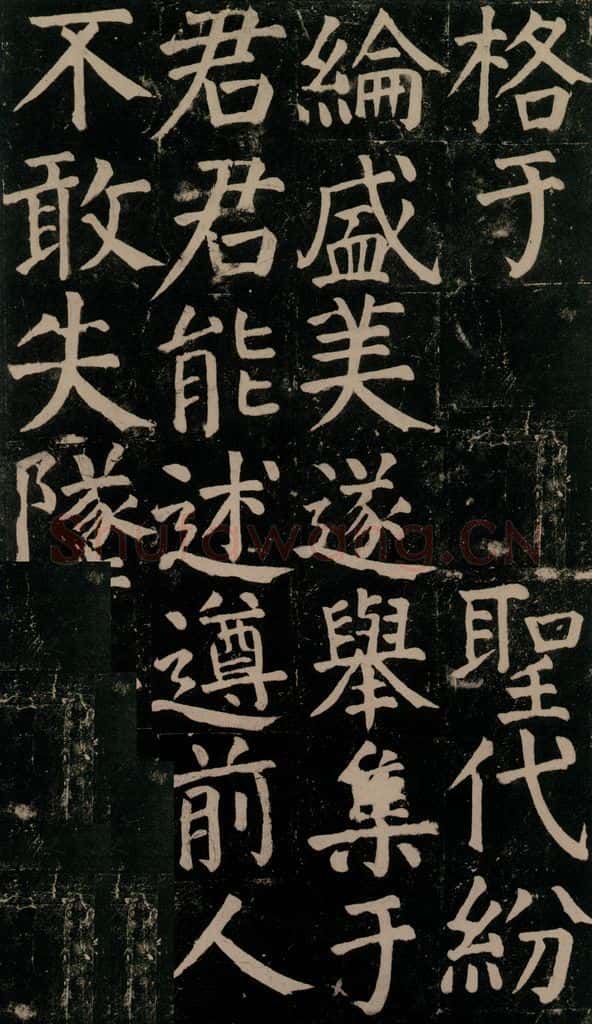 格于聖代紛
綸盛美遂舉集于
君君能述遵前人
不敢失墜
Shufawang.CN